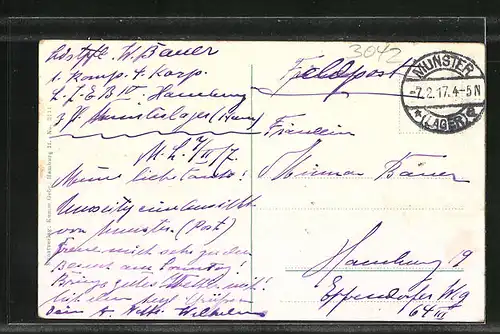 Ldstpfl. W. Bauer
1. Komp. 4. Korp.
L. J. E. B. IV. Hamburg
z. Z. Munsterlager (Hann)
M. L. 7/II 17.
Meine liebe Tante!
Umseitig eine Ansicht
von Munster. (Post)
Freue mich sehr zu dem
Besuch am Sonntag!
Bringe gutes Wetter mit!
Dein Wilhelm
3042
Feldpost
MUNSTER
-7.2.17.4-5N
*(LAGER)
Fräulein
Hamburg 19
Eppendorfer Weg
64 III